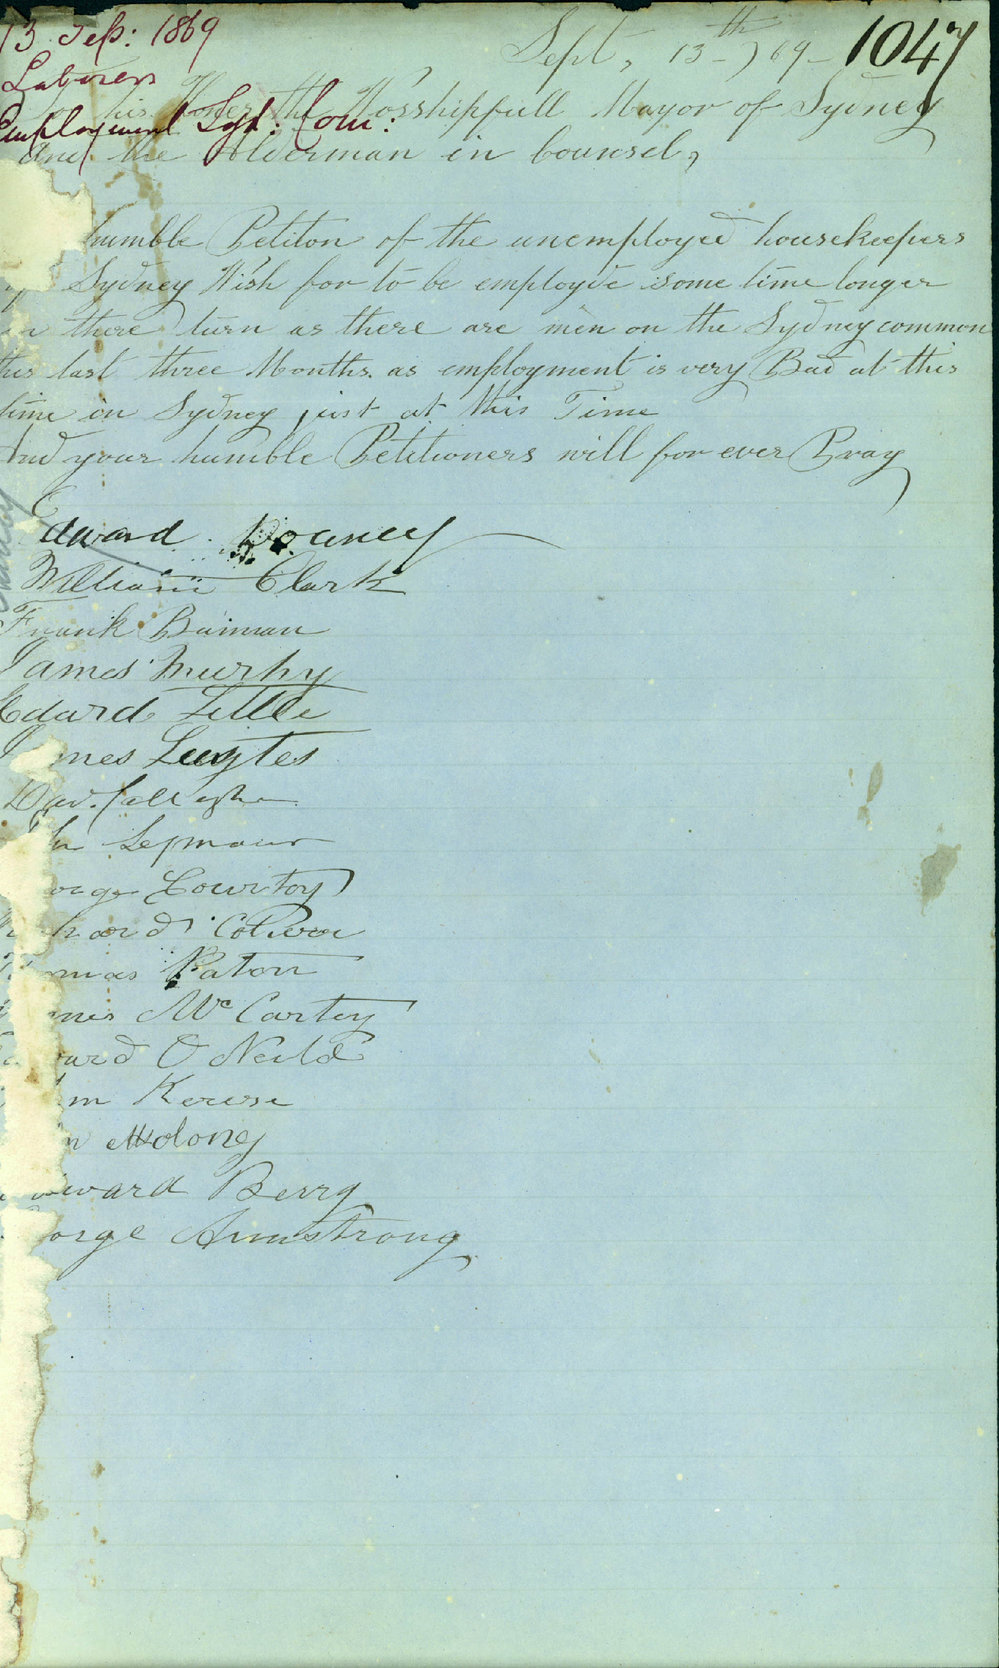 13 Sep: 1869
Laborers
Employment Syd: Com:
Sept, 13th 69
1047
his Honer the Worshipfull Mayor of Sydney
And the Alderman in Counsel,
humble Petiton of the unemployed housekeepers
of Sydney Wish for to be employde some time longer
in there turn as there are men on the Sydney common
this last three Months as employment is very Bad at this
time in Sydney just at this Time
And your humble Petitioners will for ever Pray
Edward Downey
William Clark
Frank Bauman
James Murhy
Edward Little
James Luytes
Seymour
orge Courtoy
hard
omas Paton
mes McCartey
ward O Neild
m
n Molony
Edward Berry
orge Armstrong